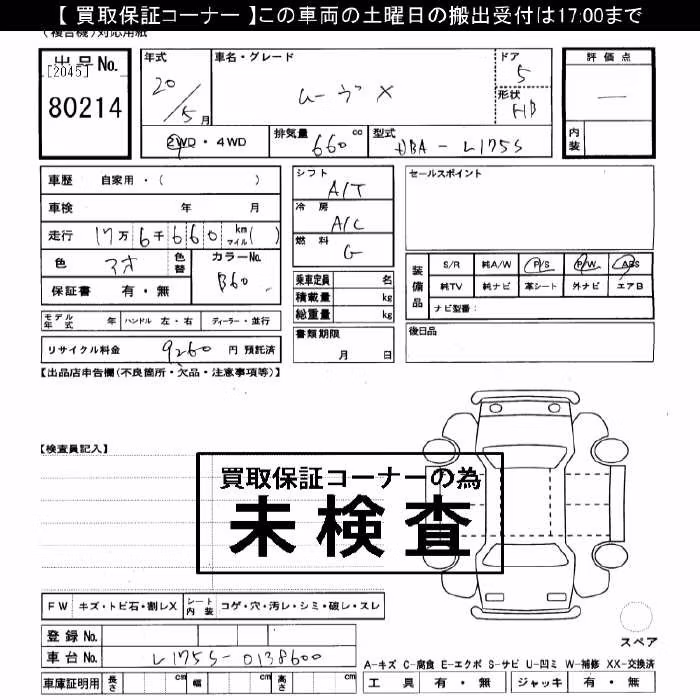 【 買取保証コーナー 】この車両の土曜日の搬出受付は17:00まで
(複合機)対応用紙
出品No. [2045] 80214
年式 20/5月
車名・グレード ムーヴX
ドア 5
形状 HB
評価点 —
内装
2WD・4WD
排気量 660 cc
型式 DBA-L175S
車歴 自家用・( )
車検 年 月
走行 17万6千660 km マイル( )
色 アオ 色替
カラーNo. B60
保証書 有・無
シフト A/T
冷房 A/C
燃料 G
乗車定員 名
積載量 kg
総重量 kg
書類期限 月 日
セールスポイント
装備品 S/R 純A/W P/S P/W ABS
純TV 純ナビ 革シート 外ナビ エアB
ナビ型番:
後日品
モデル年式 年 ハンドル 左・右 ディーラー・並行
リサイクル料金 9260 円 預託済
【出品店申告欄(不良箇所・欠品・注意事項等)】
【検査員記入】
買取保証コーナーの為
未検査
FW キズ・トビ石・割レX シート内装 コゲ・穴・汚レ・シミ・破レ・スレ
登録No.
車台No. L175S-0138600
車庫証明用 長さ cm 幅 cm 高さ cm
スペア
A-キズ C-腐食 E-エクボ S-サビ U-凹ミ W-補修 XX-交換済
工具 有・無 ジャッキ 有・無